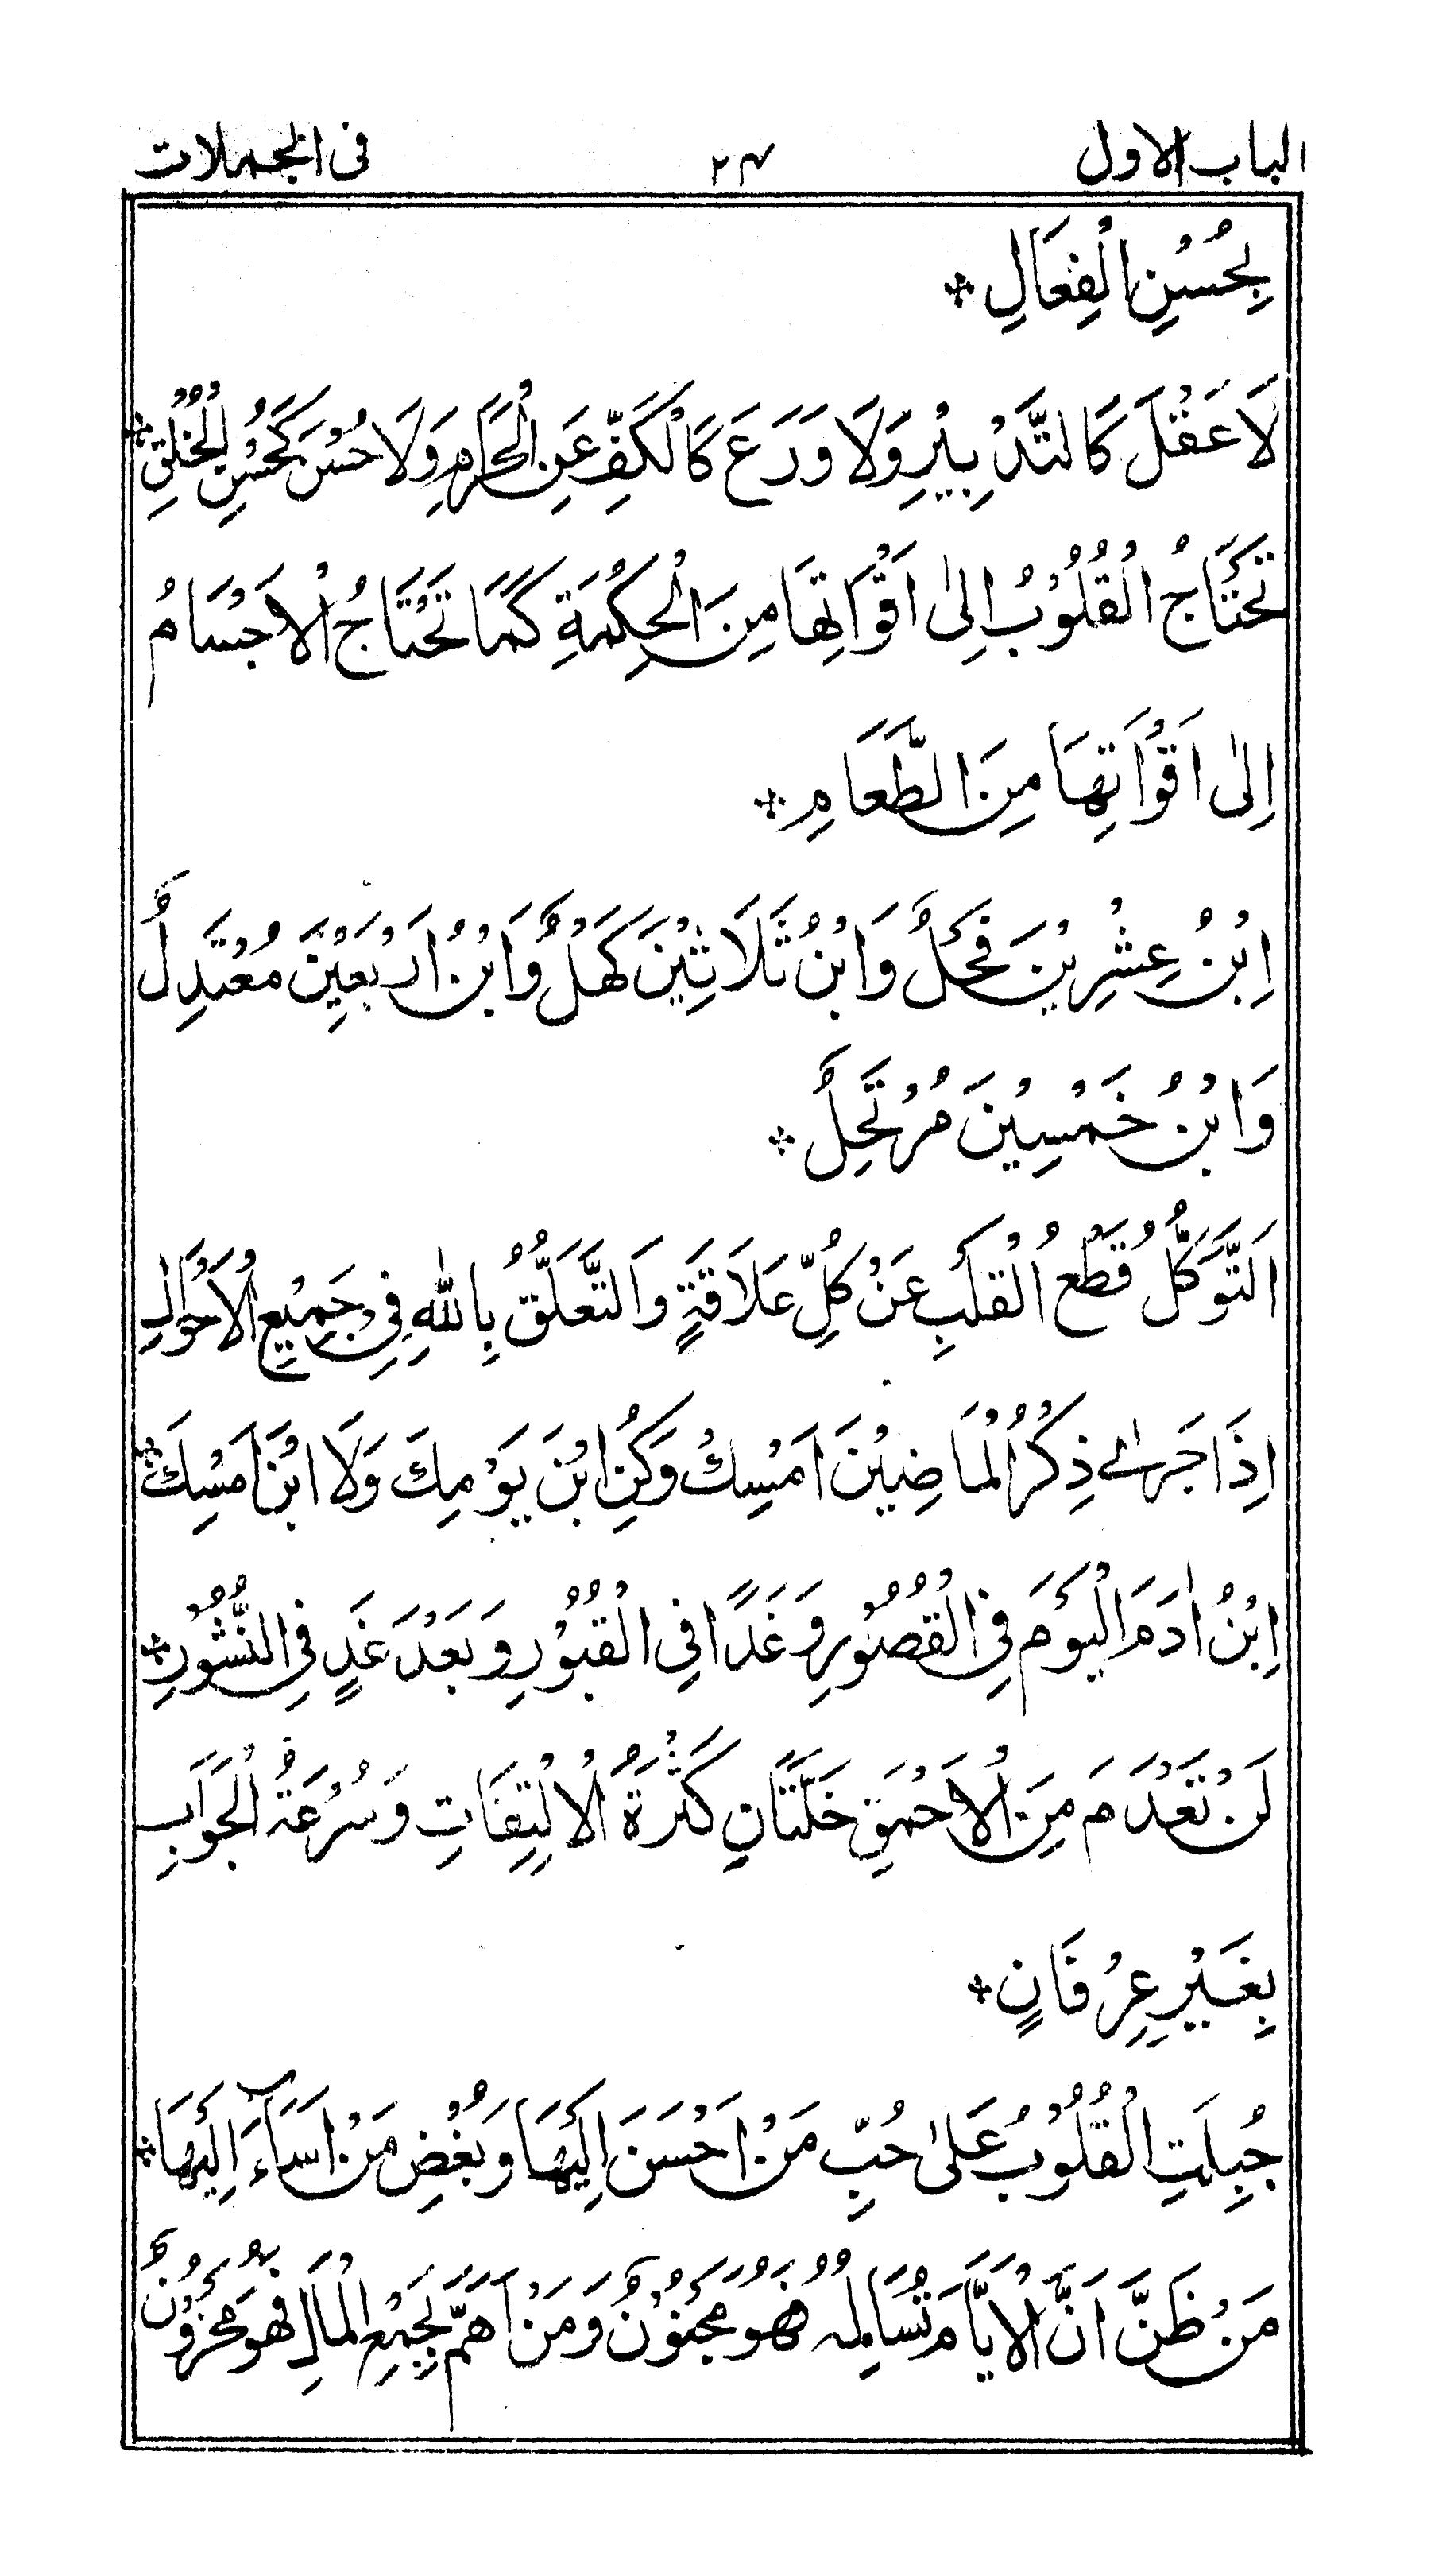 الباب الاول ٢٤ فى الجملات
بِحُسْنِ الْفِعَالِ ❊
لَا عَقْلَ كَالتَّدْبِيْرِ وَلَا وَرَعَ كَالْكَفِّ عَنِ الْحَرَامِ وَلَا حُسْنَ كَحُسْنِ الْخُلُقِ ❊
تَحْتَاجُ الْقُلُوْبُ اِلٰى اَقْوَاتِهَا مِنَ الْحِكْمَةِ كَمَا تَحْتَاجُ الْاَجْسَامُ
اِلٰى اَقْوَاتِهَا مِنَ الطَّعَامِ ❊
اِبْنُ عِشْرِيْنَ فَحْلٌ وَابْنُ ثَلَاثِيْنَ كَهْلٌ وَابْنُ اَرْبَعِيْنَ مُعْتَدِلٌ
وَابْنُ خَمْسِيْنَ مُرْتَحِلٌ ❊
اَلتَّوَكُّلُ قَطْعُ الْقَلْبِ عَنْ كُلِّ عَلَاقَةٍ وَالتَّعَلُّقُ بِاللّٰهِ فِيْ جَمِيْعِ الْاَحْوَالِ
اِذَا جَرٰى ذِكْرُ الْمَاضِيْنَ اَمْسِكْ وَكُنِ ابْنَ يَوْمِكَ وَلَا ابْنَ اَمْسِكَ ❊
اِبْنُ اٰدَمَ الْيَوْمَ فِي الْقُصُوْرِ وَغَدًا فِي الْقُبُوْرِ وَبَعْدَ غَدٍ فِي النُّشُوْرِ ❊
لَنْ تَعْدَمَ مِنَ الْاَحْمَقِ خَلَّتَانِ كَثْرَةُ الْاِلْتِفَاتِ وَسُرْعَةُ الْجَوَابِ
بِغَيْرِ عِرْفَانٍ ❊
جُبِلَتِ الْقُلُوْبُ عَلٰى حُبِّ مَنْ اَحْسَنَ اِلَيْهَا وَبُغْضِ مَنْ اَسَآءَ اِلَيْهَا ❊
مَنْ ظَنَّ اَنَّ الْاَيَّامَ تُسَالِمُهُ فَهُوَ مَجْنُوْنٌ وَمَنْ اَهَمَّ بِجَمْعِ الْمَالِ فَهُوَ مَحْزُوْنٌ